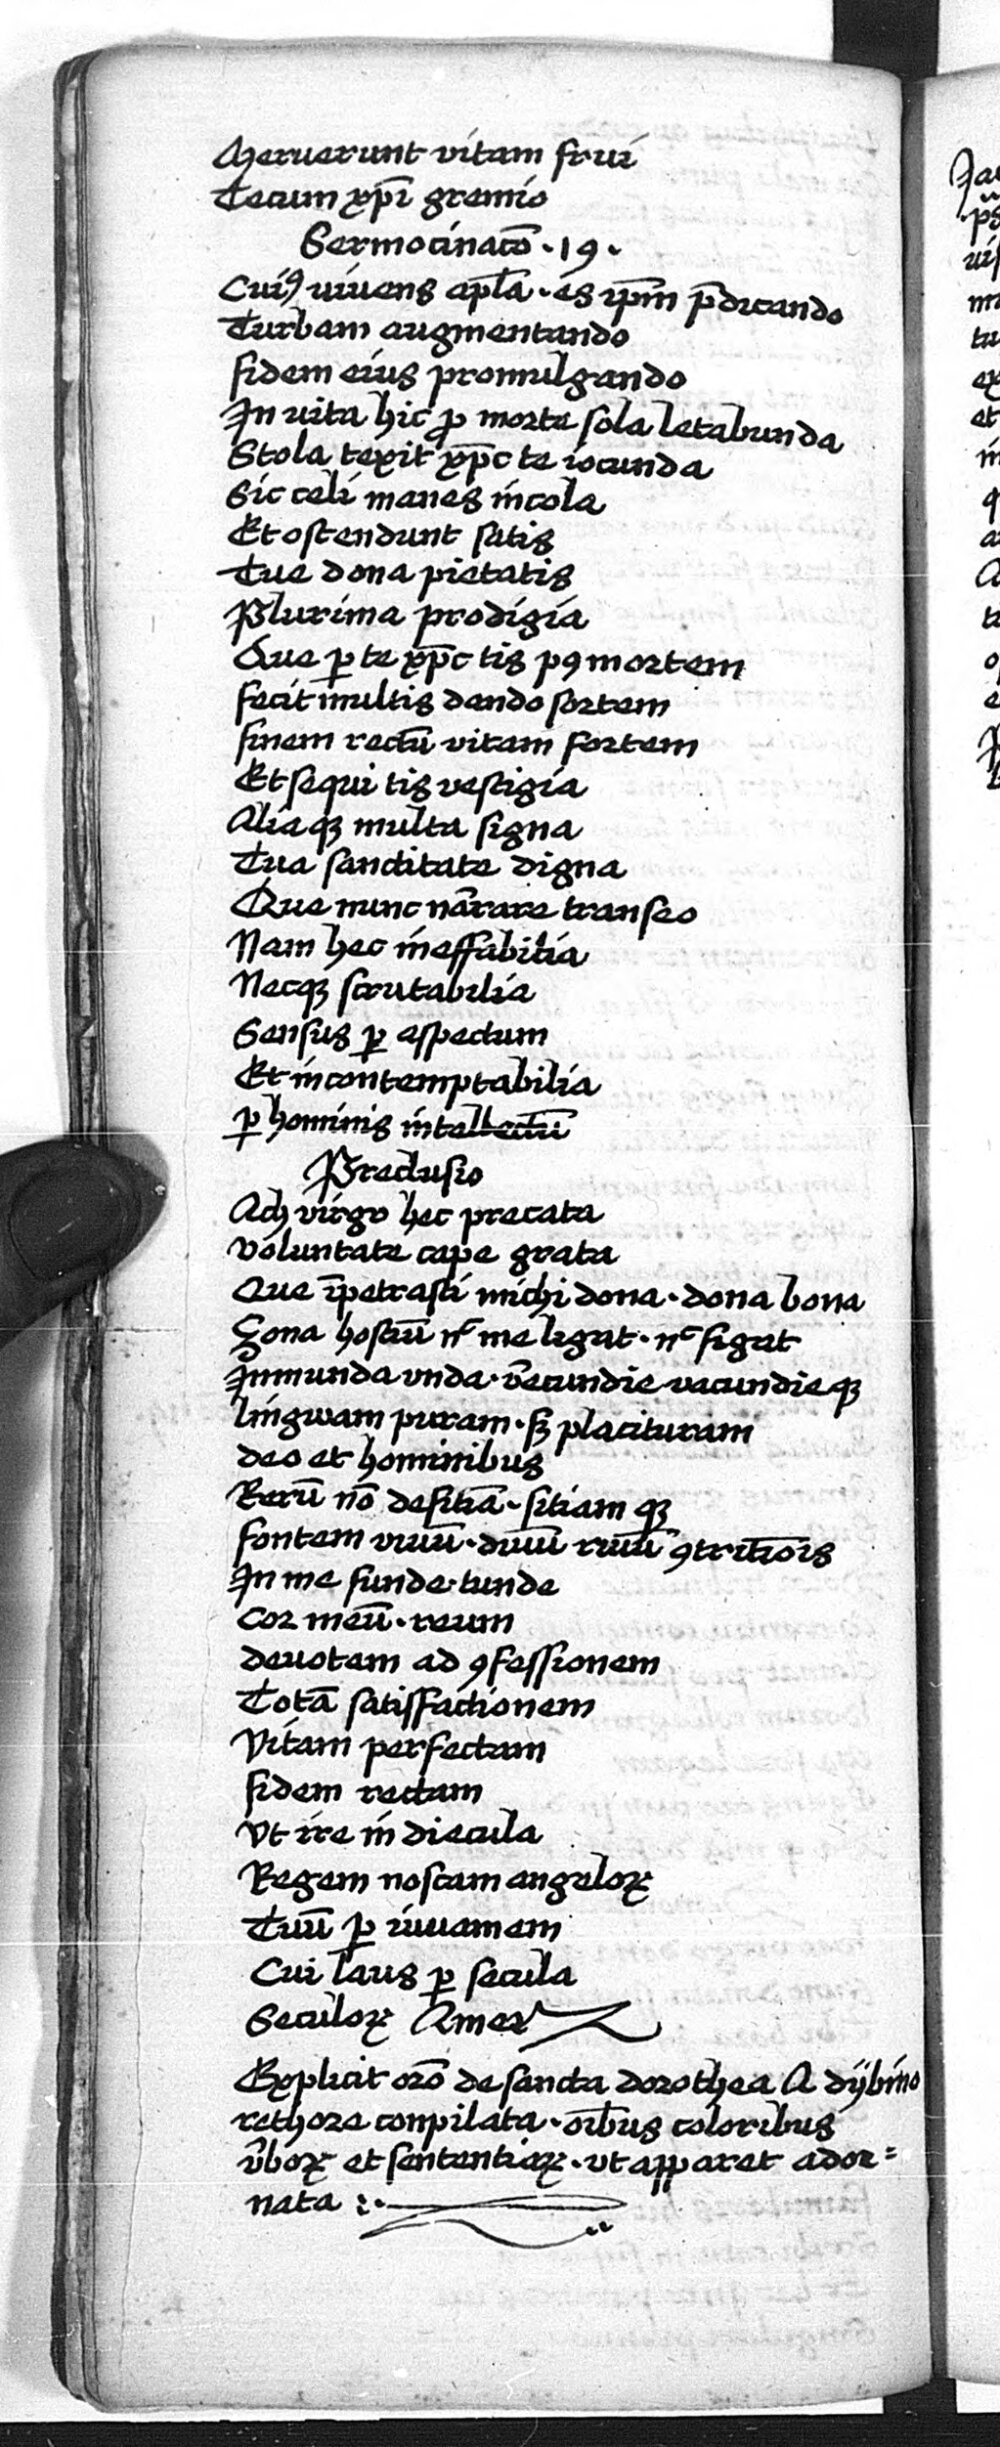 Meruerunt vitam frui
Tecum xp̄i gremio
Sermocinacō · 19 ·
Cuiꝰ uiuens apl̄a · es ip̄m p̄dicando
Turbam augmentando
fidem eius promulgando
In uita hic ꝓ morte sola letabunda
Stola texit xp̄c te iocunda
Sic celi manes incola
Et ostendunt satis
Tue dona pietatis
Plurima prodigia
Que ꝑ te xp̄c tis pꝰ mortem
fecit multis dando sortem
finem rectū vitam fortem
Et sequi tis vestigia
Aliaqꝫ multa signa
Tua sanctitate digna
Que nunc nārrare transeo
Nam hec ineffabilia
Necqꝫ scrutabilia
Sensus ꝑ aspectum
Et incontemptabilia
ꝑ hominis intellectū
Preclusio
Ach virgo hec precata
Voluntate cape grata
Que īpetrasti michi dona · dona bona
Zona hostiū nᶜ me ligat · nᶜ figat
Inmunda vnda · v̄ecundie vacundie qꝫ
lingwam puram · sꝫ placituram
deo et hominibus
Rerū nō desitiā · sitiam qꝫ
fontem viuū · diuū riuū ꝯtritiōis
In me funde · tunde
cor meū · reum
deuotam ad ꝯfessionem
Totā satisfactionem
Vitam perfectam
fidem rectam
Vt ire in diecula
Regem noscam angeloꝝ
Tuū ꝑ iuuamem
Cui laus ꝑ secula
Seculoꝝ Amen
Explicit orō de sancta dorothea A dÿbino
rethore conpilata · oībus coloribus
v̄boꝝ et sententiaꝝ · vt apparet ador=
nata :·